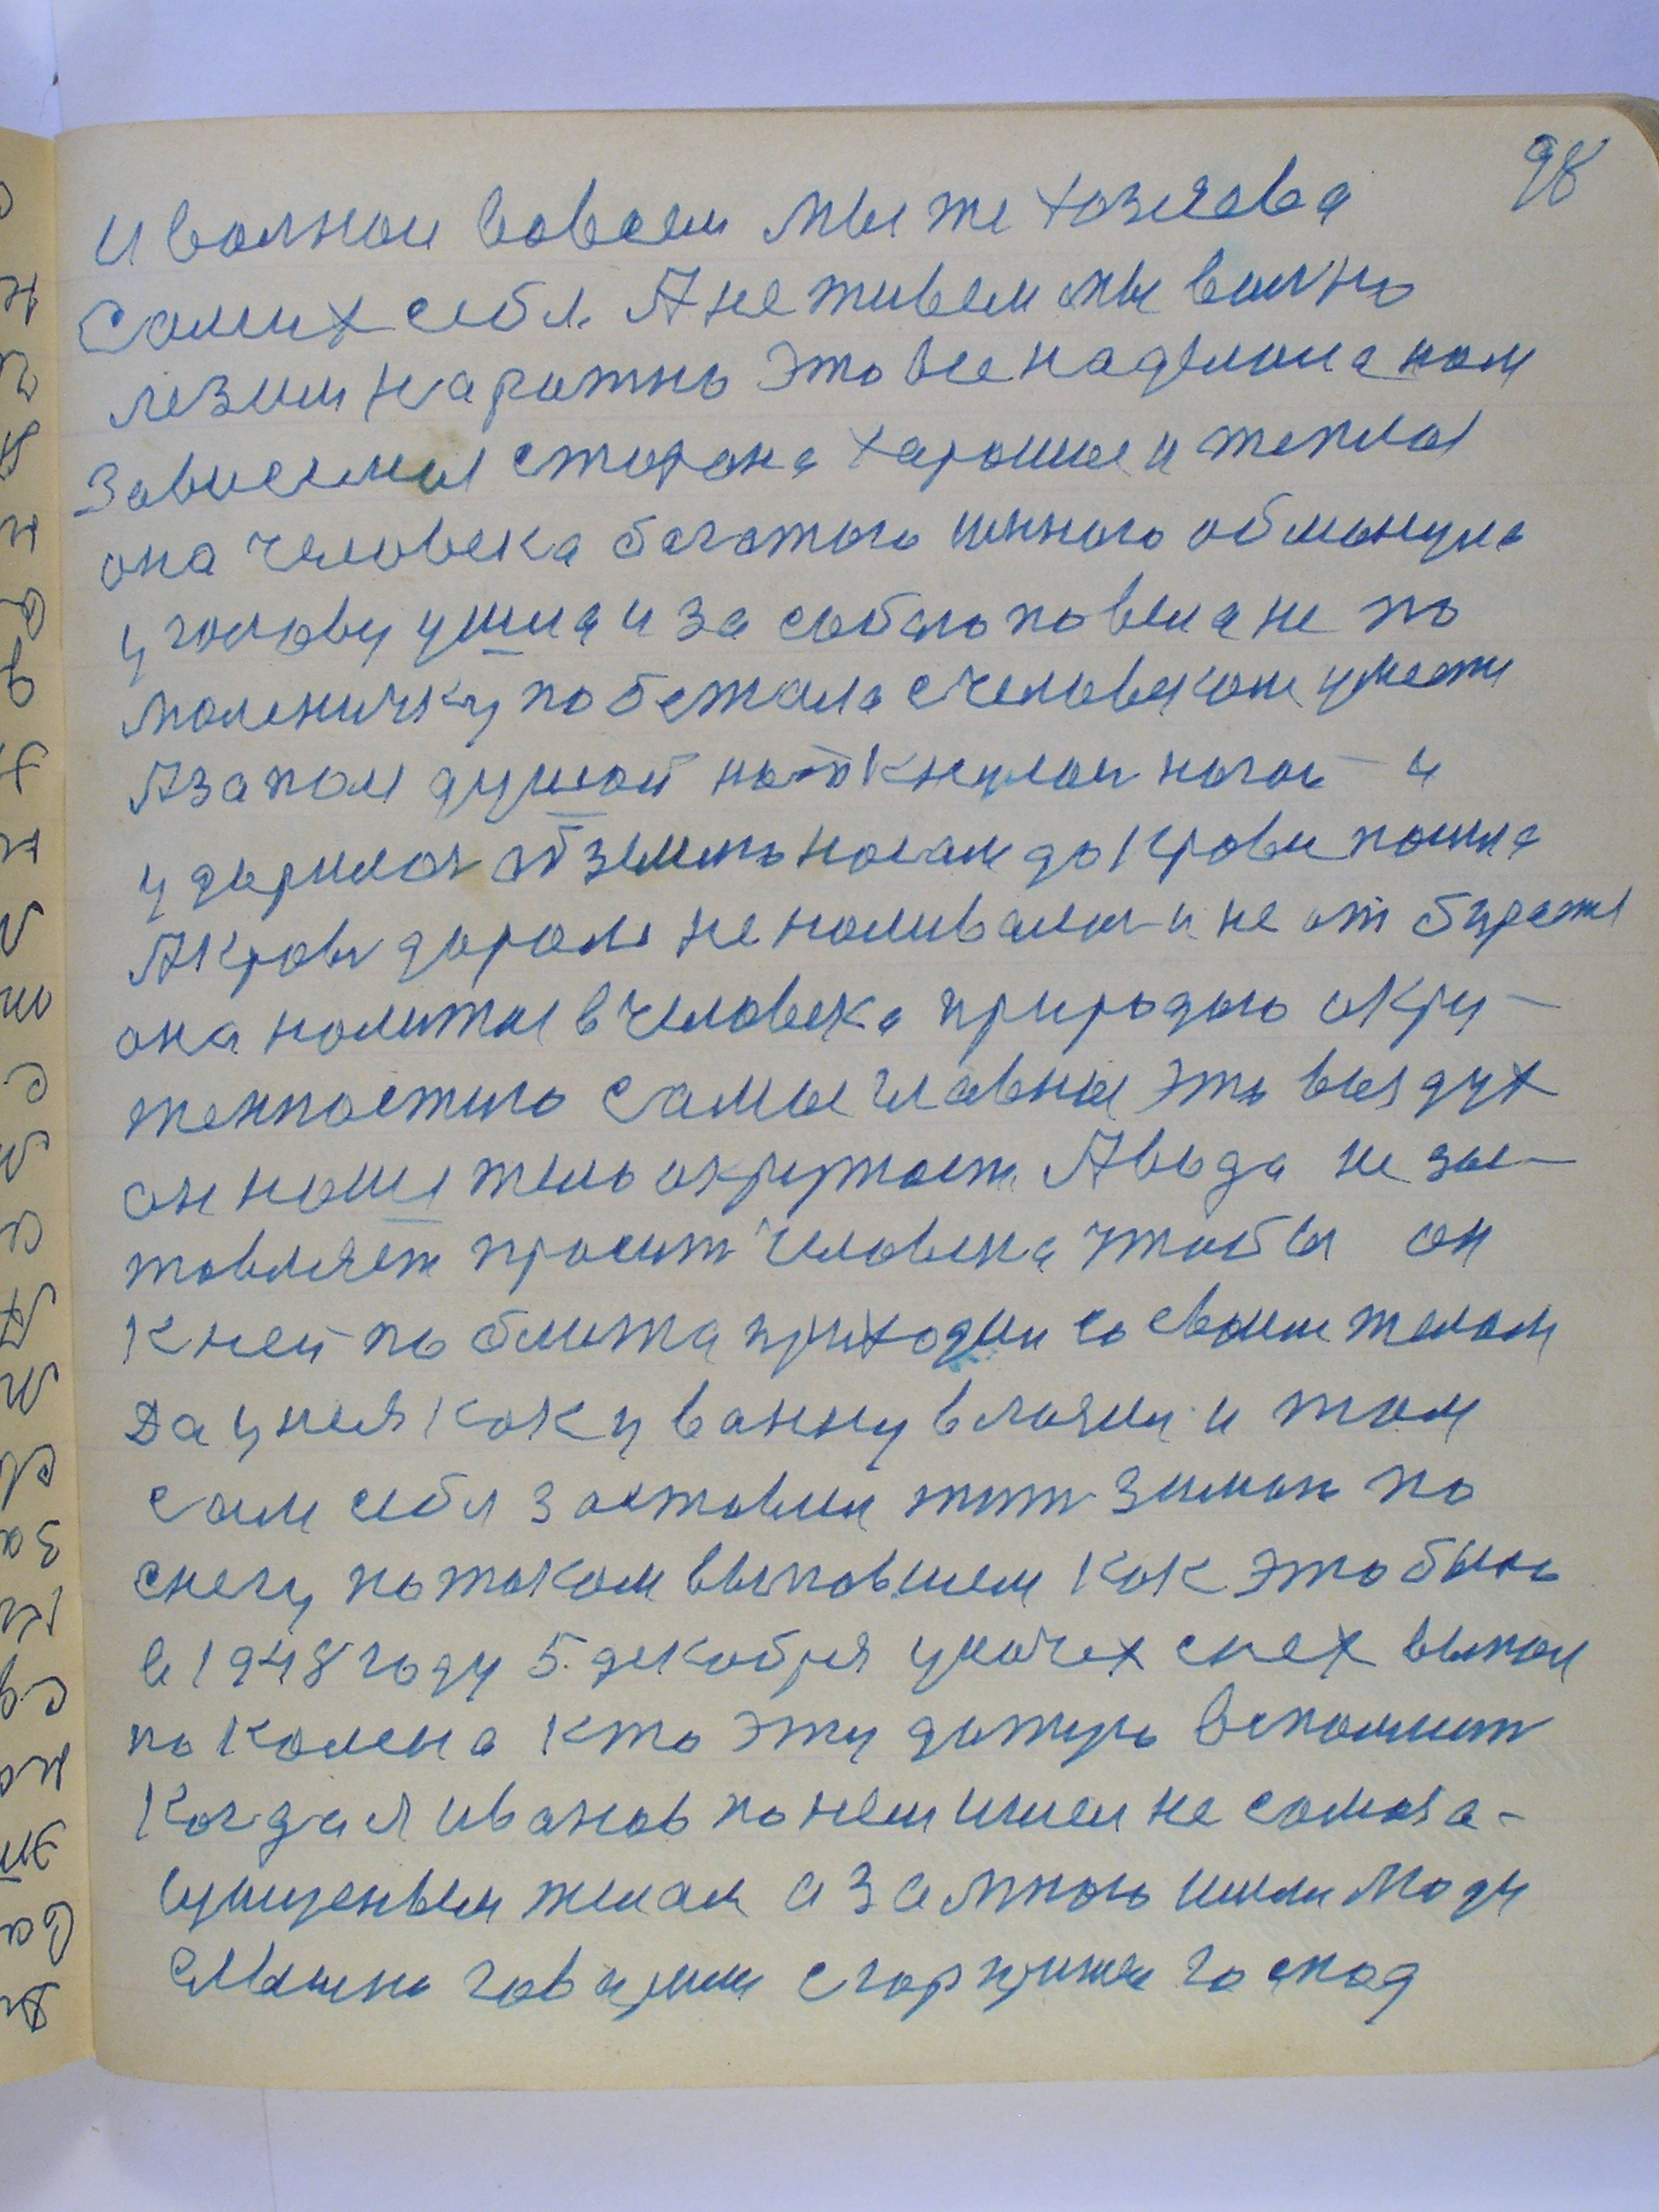 98
и волнои вовсем мы же хозяева
самих себя. А не живем мы волно
лезим на ражно это все наделала нам
зависемая старана харошие и теплая
она человека багатого иннога обманула
у голову ушла и за собою повела не по
маленичку побежала с человеком умести
А запом душой наткнулси ногой и
ударилси об землю носам до крови пошла
А кровь даром не наливалси и не от бирают
она налитае в человека природою окру-
женностию самые главные это воздух
он наши тело окружает. А вода не зас-
тавляет просит человека чтобы он
к ней по ближа приходил со своим телом
да у ней как у ванну влазил и там
сам себя заставил жит зимои по
снегу по таком выпавшем как это было
в 1948 году 5 декабря у ночех снех выпал
по колена кто эту датую вспомнит
когда я иванов по нем ишел не самоза-
щищеным телам а за мною ишли люди
смешно гаварили старушки господ